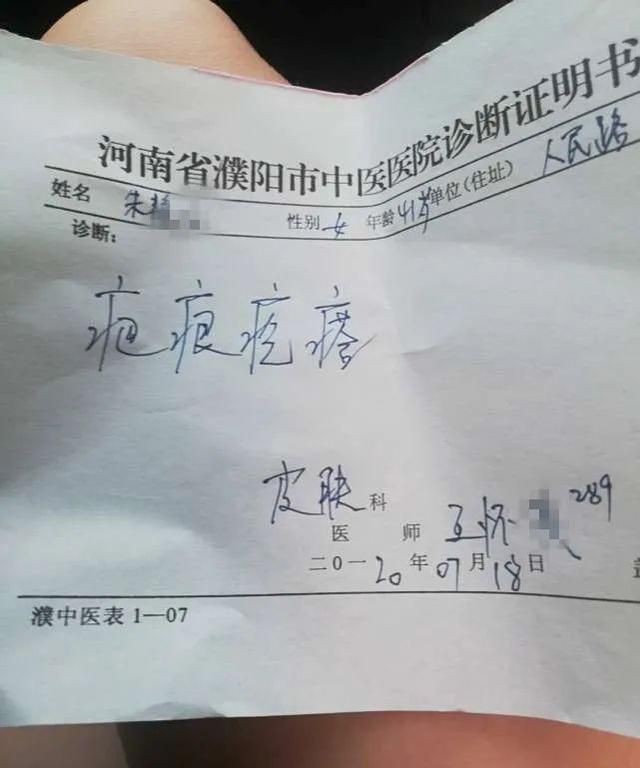 河南省濮阳市中医医院诊断证明书
姓名 朱 性别 女 年龄 41岁 单位(住址) 人民路
诊断:
疤痕疙瘩
皮肤科
医 师 王怀 289
二0一20年07月18日
濮中医表1—07